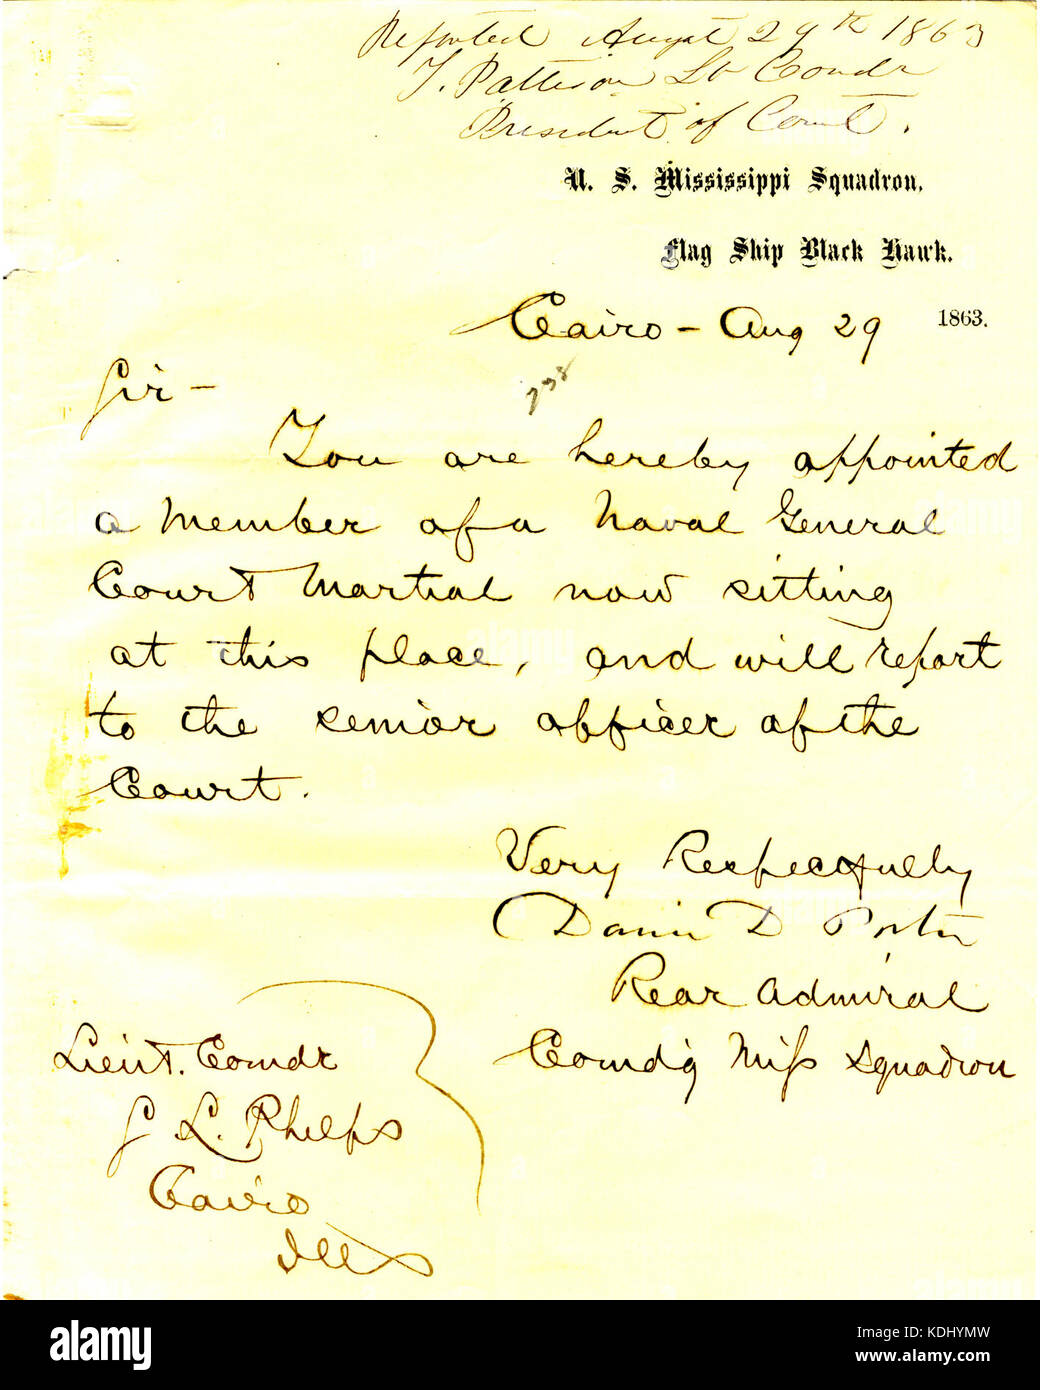 Reported August 29th 1863
T. Pattison Lt Comdr
President of Court.
U. S. Mississippi Squadron,
Flag Ship Black Hawk.
Cairo - Aug 29 1863.
Sir -
You are hereby appointed
a member of a Naval General
Court Martial now sitting
at this place, and will report
to the senior officer of the
Court.
Very Respectfully
David D Porter
Rear Admiral
Comdg Miss Squadron
Lieut. Comdr
S L. Phelps
Cairo
Ills
alamy
Image ID: KDJHYMW
www.alamy.com